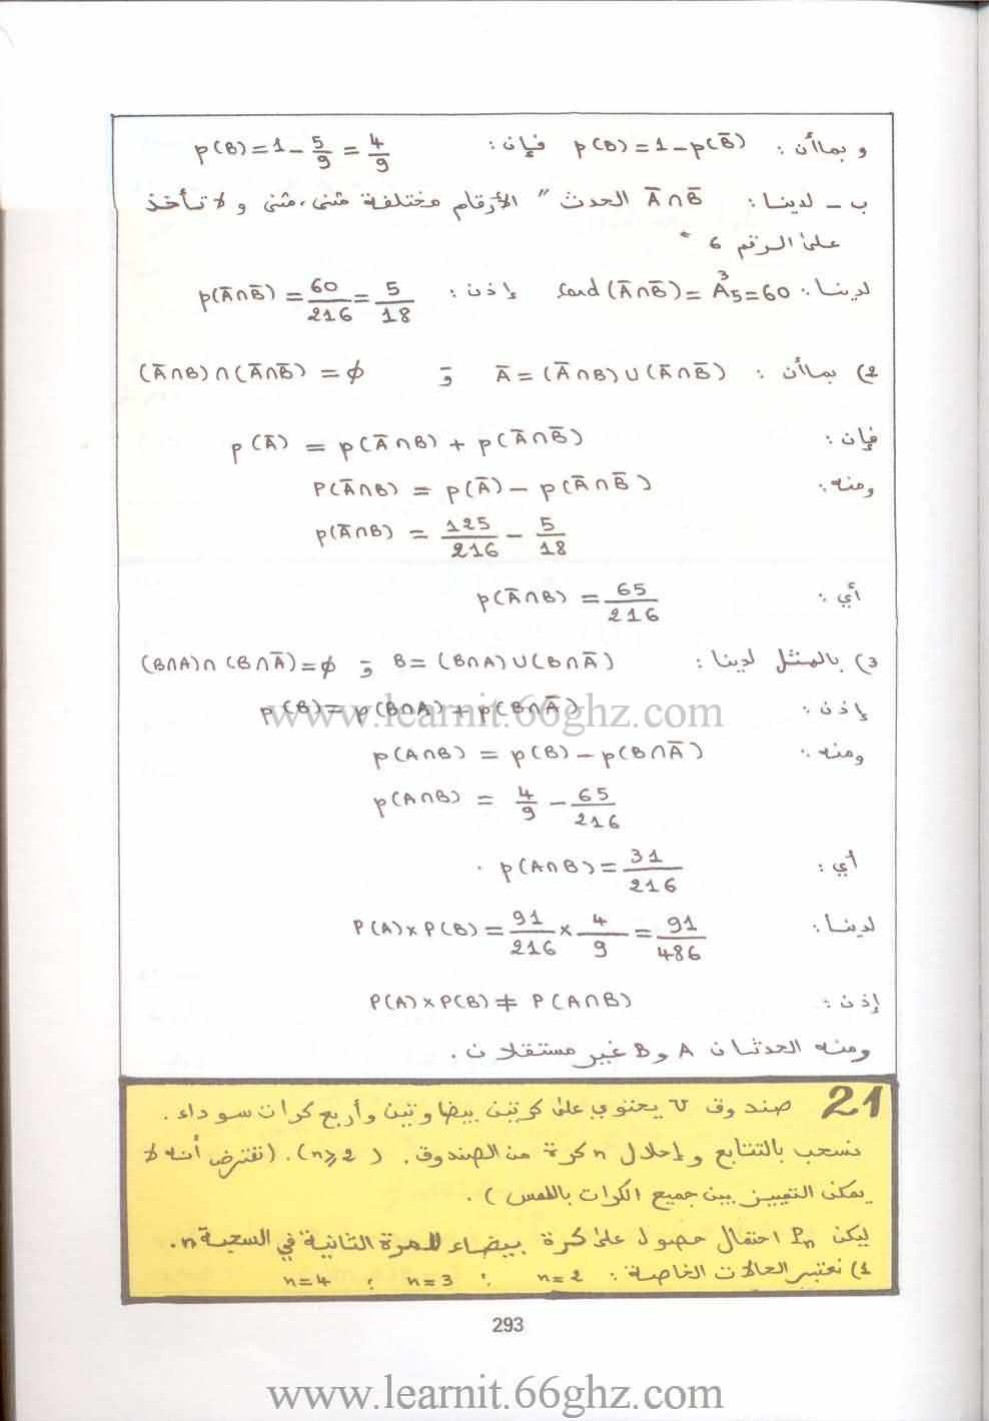 وبما أن : p(B)=1-p(B̄) فإن : p(B)=1-5/9=4/9
ب - لدينا : Ā∩B̄ الحدث " الأرقام مختلفة مثنى، مثنى و لا تأخذ
على الرقم 6 "
لدينا : card(Ā∩B̄)=A³₅=60 إذن : p(Ā∩B̄)=60/216=5/18
2) بما أن : Ā=(Ā∩B)∪(Ā∩B̄) و (Ā∩B)∩(Ā∩B̄)=ϕ
فإن : p(Ā)=p(Ā∩B)+p(Ā∩B̄)
ومنه : P(Ā∩B)=p(Ā)-p(Ā∩B̄)
p(Ā∩B)=125/216-5/18
أي : p(Ā∩B)=65/216
3) بالمثل لدينا : B=(B∩A)∪(B∩Ā) و (B∩A)∩(B∩Ā)=ϕ
إذن : p(B)=p(B∩A)+p(B∩Ā)
www.learnit.66ghz.com
ومنه : p(A∩B)=p(B)-p(B∩Ā)
p(A∩B)=4/9-65/216
أي : p(A∩B)=31/216 .
لدينا : P(A)×P(B)=91/216×4/9=91/486
إذن : P(A)×P(B)≠P(A∩B)
ومنه الحدثان A و B غير مستقلان .
21 صندوق U يحتوي على كرتين بيضاوتين وأربع كرات سوداء .
نسحب بالتتابع وإحلال n كرة من الصندوق . (n⩾2) . (نفترض أنه لا
يمكن التمييز بين جميع الكرات باللمس ) .
ليكن Pₙ احتمال حصول على كرة بيضاء للمرة الثانية في السحبة n .
1) نعتبر الحالات الخاصة : n=2 ; n=3 ; n=4
293
www.learnit.66ghz.com